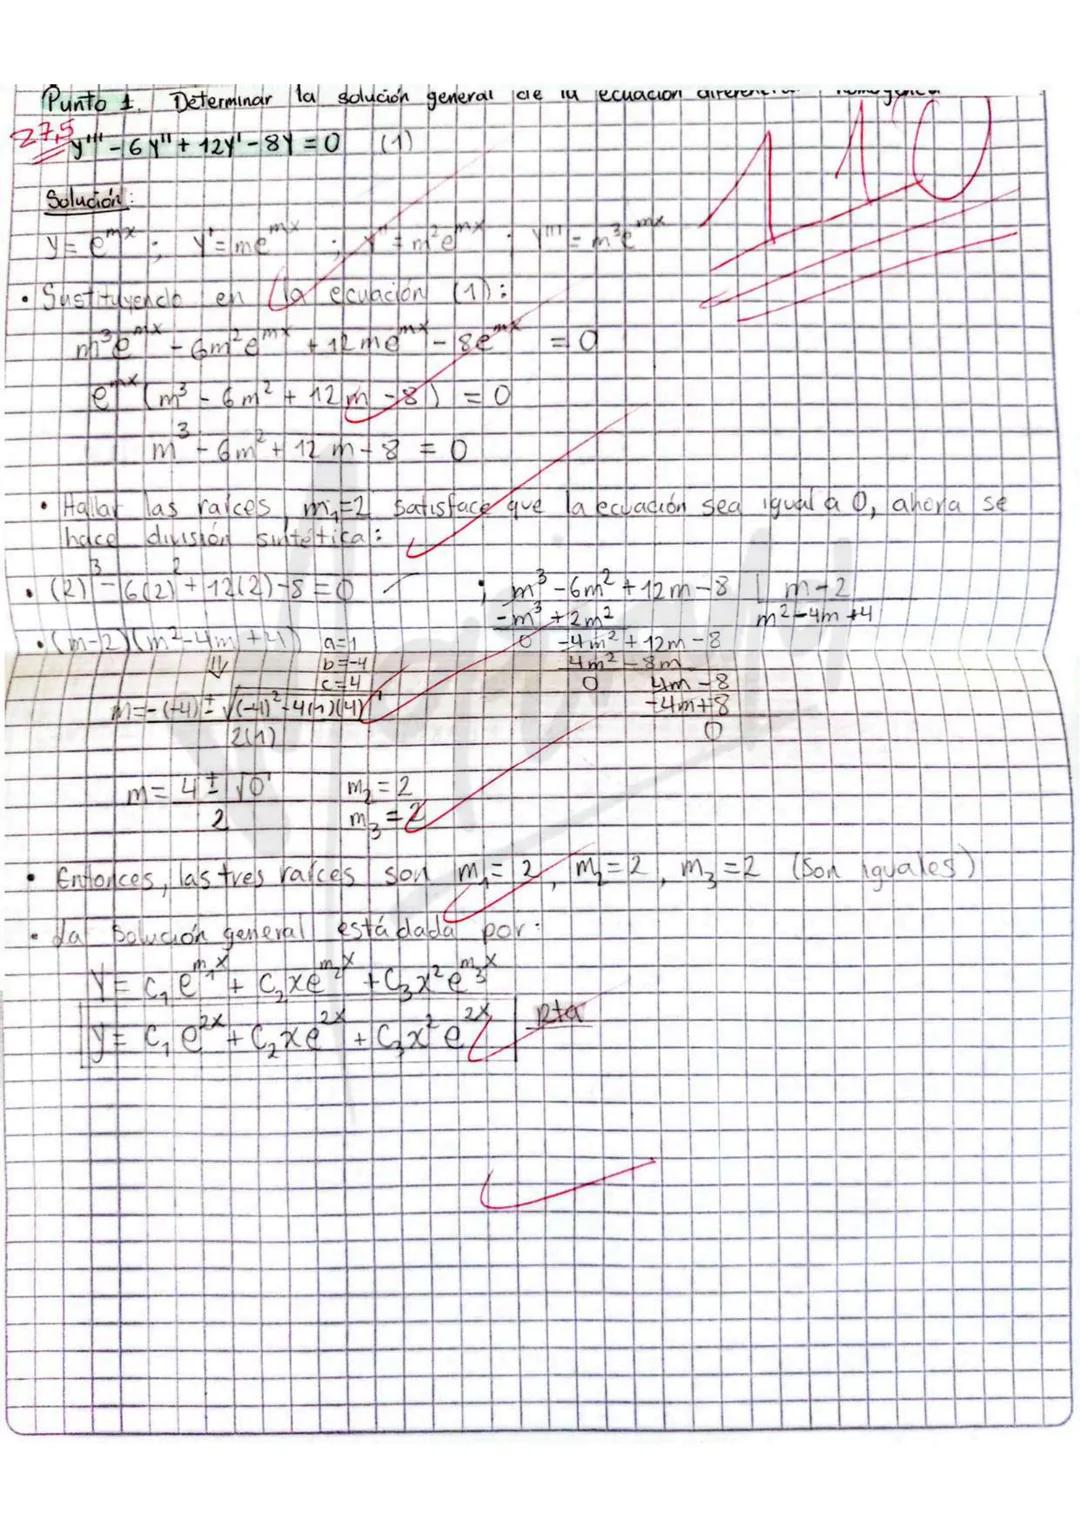 Punto 1. Determinar la solución general de la ecuación diferencial homogénea
27,5
110
y''' - 6y'' + 12y' - 8y = 0 (1)
Solución:
y = e^mx ; y' = me^mx ; y'' = m²e^mx ; y''' = m³e^mx
• Sustituyendo en la ecuación (1):
m³e^mx - 6m²e^mx + 12me^mx - 8e^mx = 0
e^mx (m³ - 6m² + 12m - 8) = 0
m³ - 6m² + 12m - 8 = 0
• Hallar las raíces, m₁=2 satisface que la ecuación sea igual a 0, ahora se
hace división sintética:
• (2)³ - 6(2)² + 12(2) - 8 = 0 ; m³ - 6m² + 12m - 8 | m - 2
-m³ + 2m² m² - 4m + 4
• (m-2)(m² - 4m + 4) a=1 0 -4m² + 12m - 8
⇓ b=-4 4m² - 8m
c=4 0 4m - 8
m = -(-4) ± √(-4)² - 4(1)(4) -4m + 8
2(1) 0
m = 4 ± √0 m₂ = 2
2 m₃ = 2
• Entonces, las tres raíces son m₁ = 2, m₂ = 2, m₃ = 2 (son iguales)
• La solución general está dada por:
y = c₁e^m₁x + c₂xe^m₂x + c₃x²e^m₃x
y = c₁e^2x + c₂xe^2x + c₃x²e^2x rta